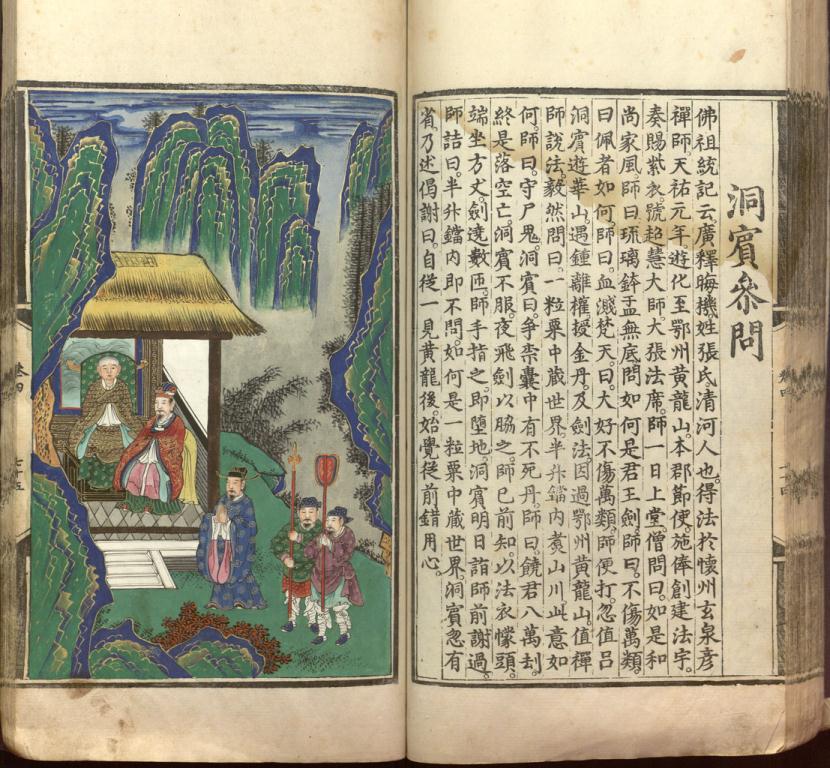 洞賓叅問
佛祖統記云。廣釋晦機姓張氏。清河人也。得法扵懷州玄泉彥
禪師。天祐元年。遊化至鄂州黃龍山。本郡節使。施俸創建法宇。
奏賜紫衣。號超慧大師。大張法席。師一日上堂。僧問曰。如是和
尚家風。師曰。琉璃鉢盂無底。問如何是君王劍。師曰。不傷萬類。
曰佩者如何。師曰。血濺梵天。曰。大好不傷萬類。師便打。忽值呂
洞賓遊華山。遇鍾離權。授金丹。及劍法。因過鄂州黃龍山。值禪
師說法。毅然問曰。一粒粟中藏世界。半升鐺內煑山川。此意如
何。師曰。守尸鬼。洞賓曰。爭柰囊中有不死丹。師曰。饒君八萬刼
終是落空亡。洞賓不服。夜飛劍以脇之。師已前知。以法衣幪頭。
端坐方丈。劍遶數匝。師手指之。即墮地。洞賓明日詣師前謝過。
師詰曰。半升鐺內即不問。如何是一粒粟中藏世界。洞賓忽有
省。乃述偈謝曰。自從一見黃龍後。始覺從前錯用心。
卷四
七十五